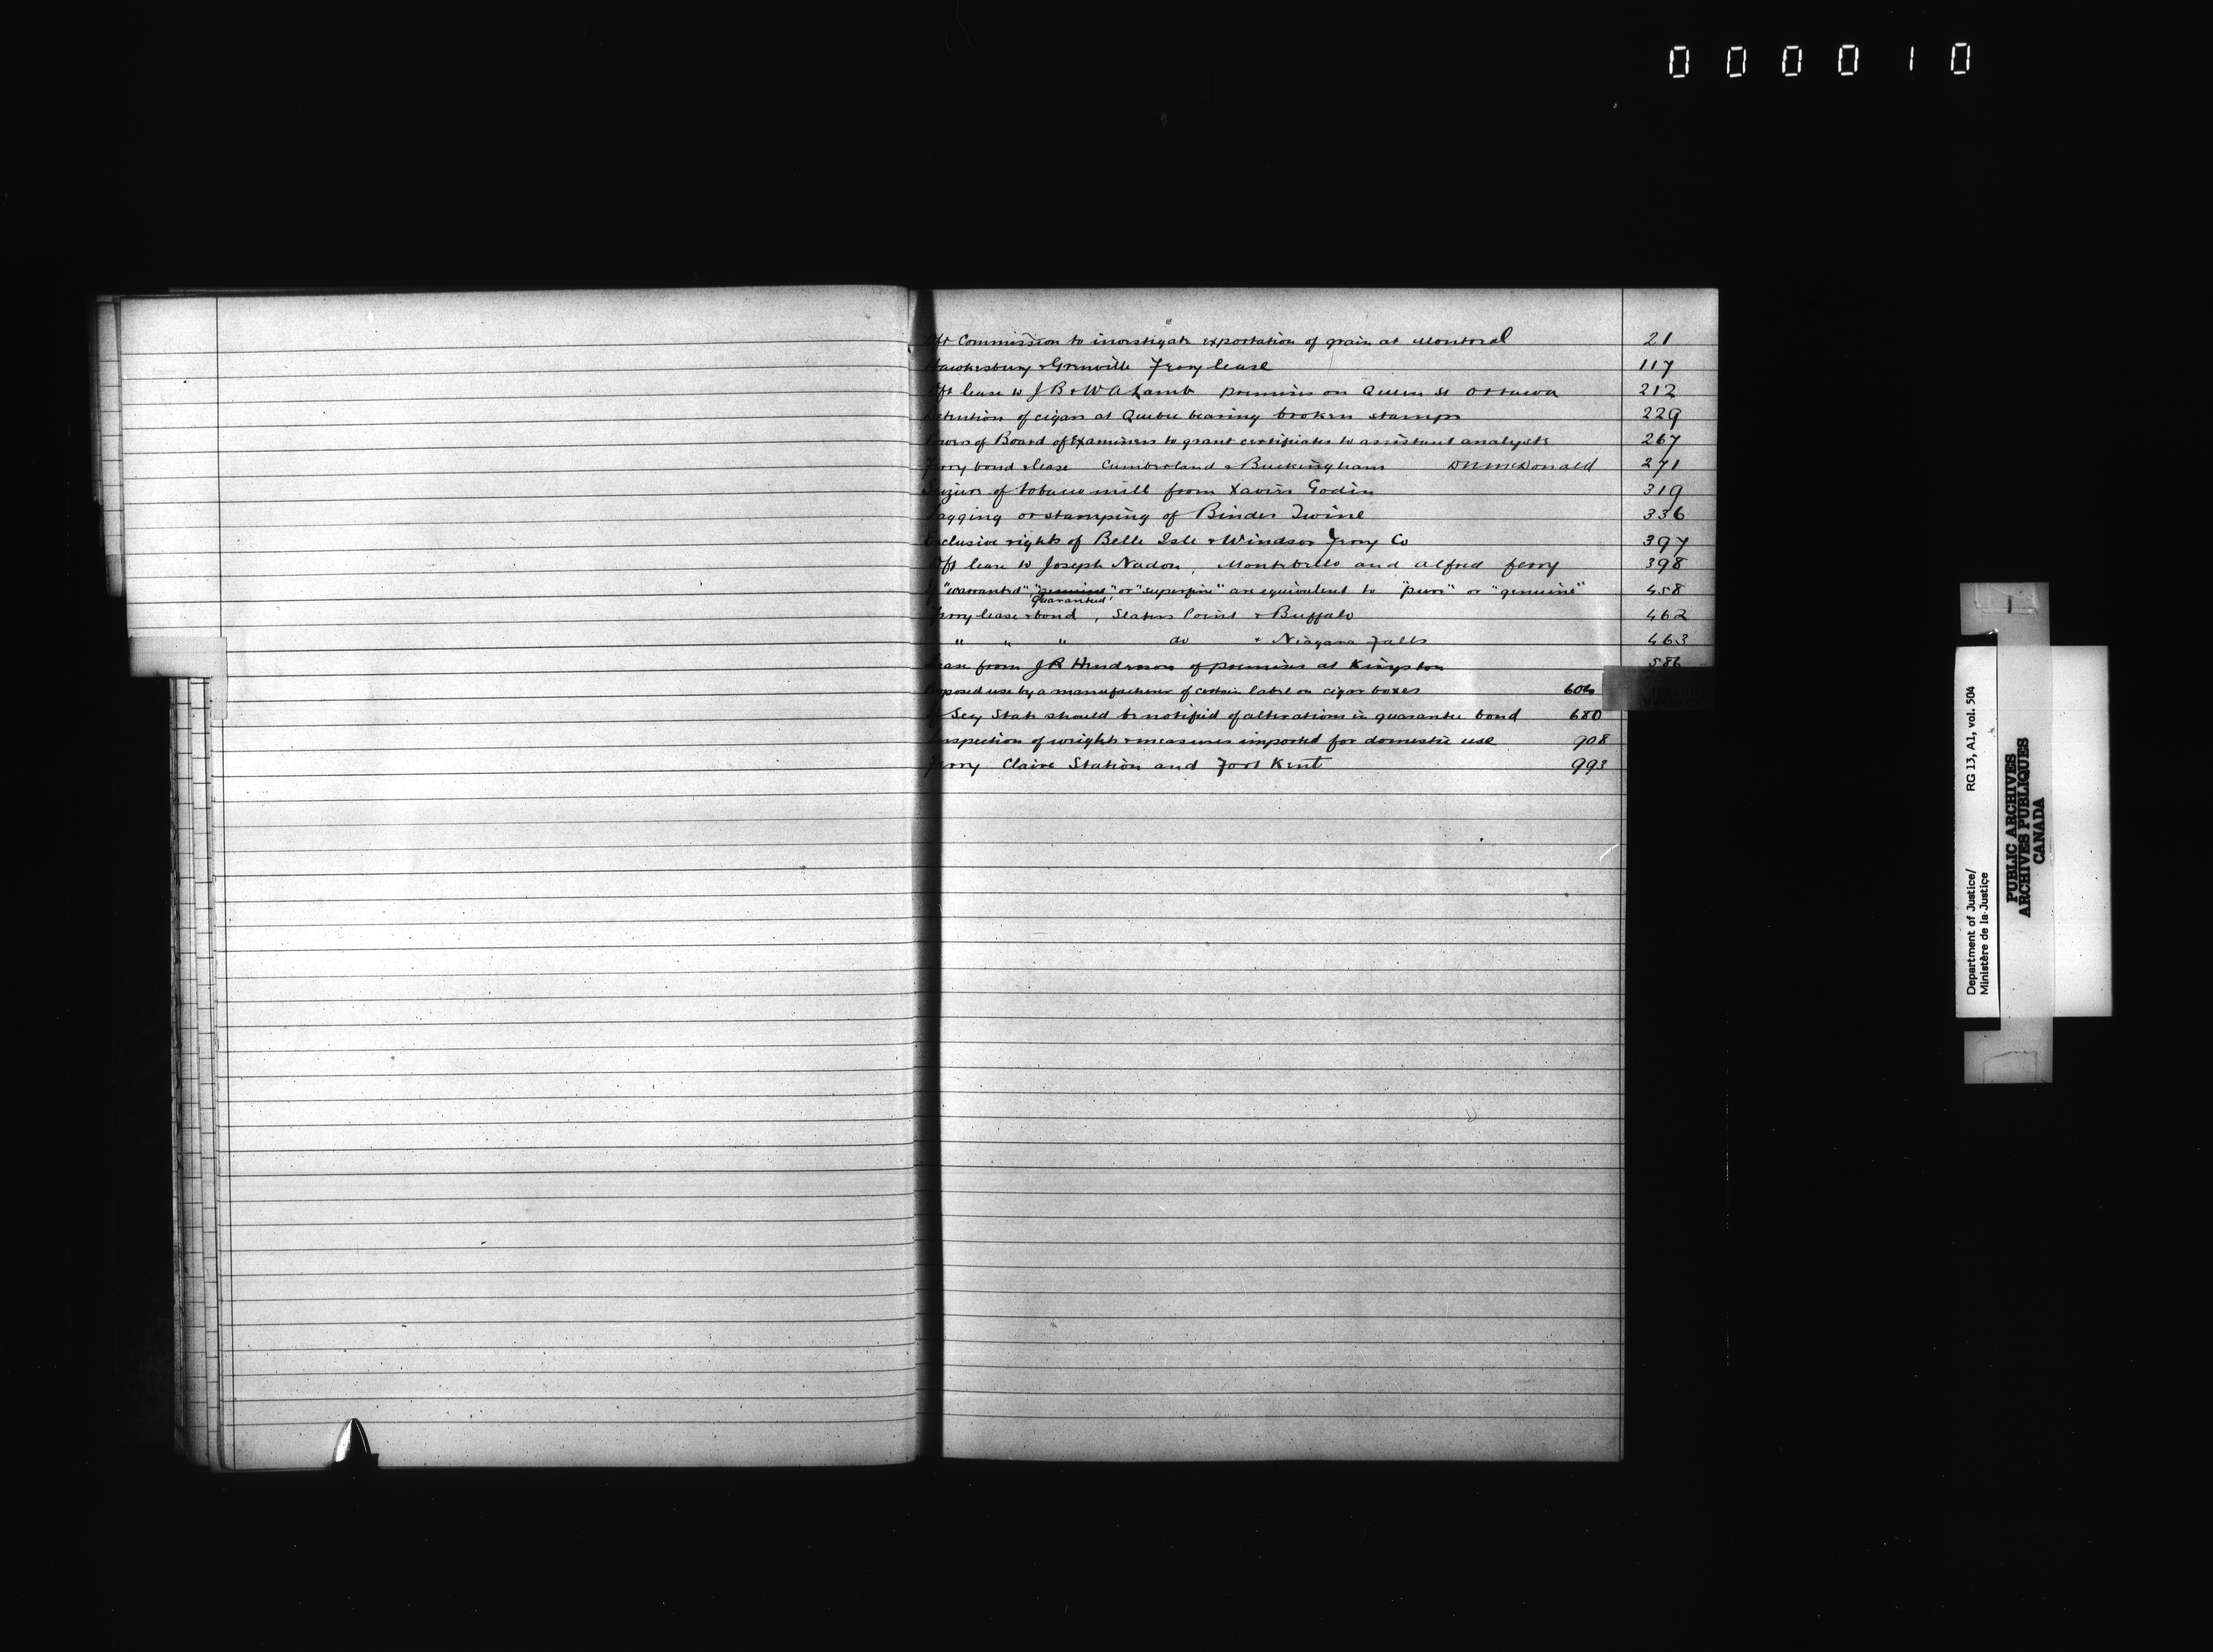 000010
Dft Commission to investigate exportation of grain at Montreal 21
Hawkesbury & Grenville Ferry lease 117
Dft lease to J B & W A Lamb premises on Queen St Ottawa 212
Detention of cigars at Quebec bearing broken stamps 229
Powers of Board of Examiners to grant certificates to assistant analysts 267
Ferry bond & lease Cumberland & Buckingham McDonald 271
Seizure of tobacco mill from Xavier Godin 319
Tagging or stamping of Binder Twine 336
Exclusive rights of Belle Isle & Windsor Ferry Co 397
Dft lease to Joseph Nadon, Montebello and Alfred ferry 398
If "warranted" "genuine" or "superfine" are equivalent to "pure" or "genuine" 458
"guaranteed"
Ferry lease & bond, Slaters Point & Buffalo 462
" " " do & Niagara Falls 463
Lease from J R Henderson of premises at Kingston 586
Proposed use by a manufacturer of certain label on cigar boxes
If Secy State should be notified of alterations in guarantee bond 680
Inspection of weights & measures imported for domestic use 908
Ferry Claire Station and Fort Kent 993
Department of Justice/ RG 13, A1, vol. 504
Ministère de la Justice
PUBLIC ARCHIVES
ARCHIVES PUBLIQUES
CANADA